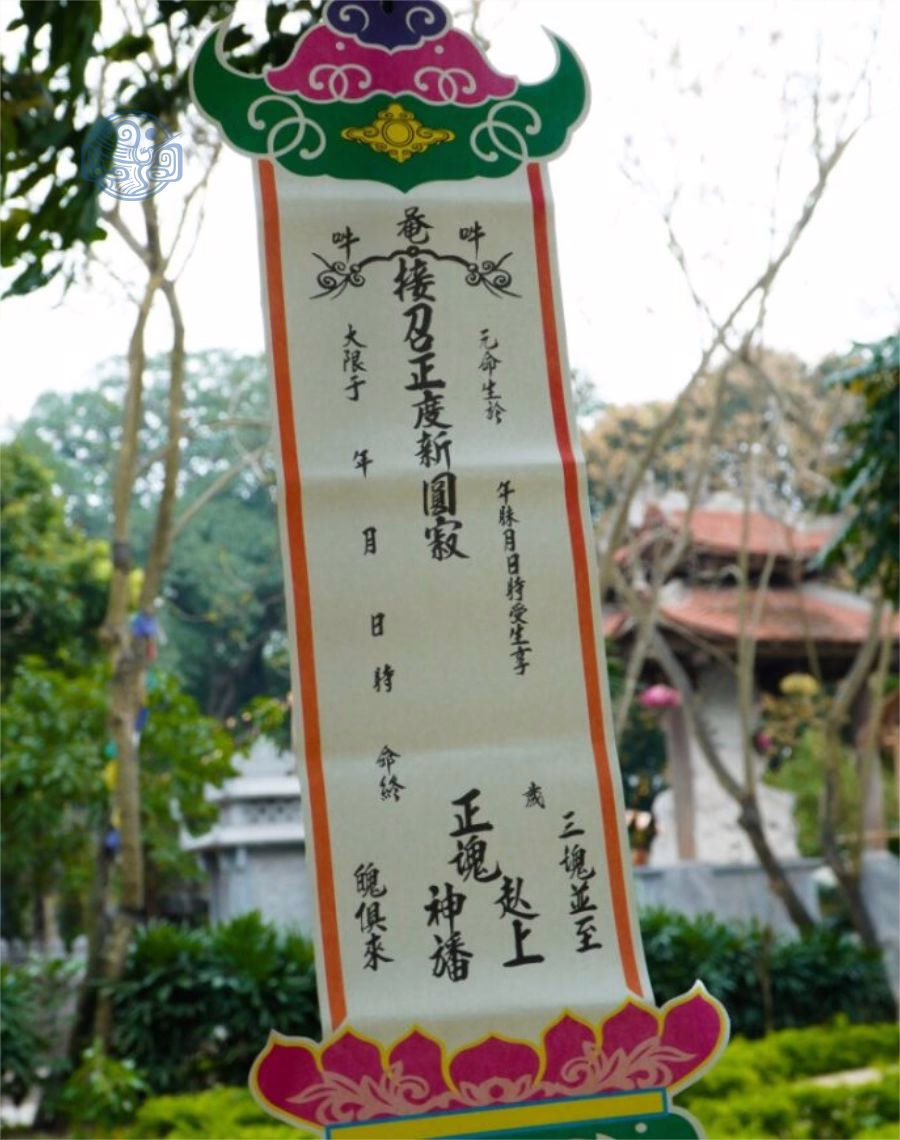 吽 菴 吽
三魂並至
元命生於 年 月日時受生享 歲
接召正度新圓寂 正魂 赴上 神旛
大限于 年 月 日 時 命終
魄俱來